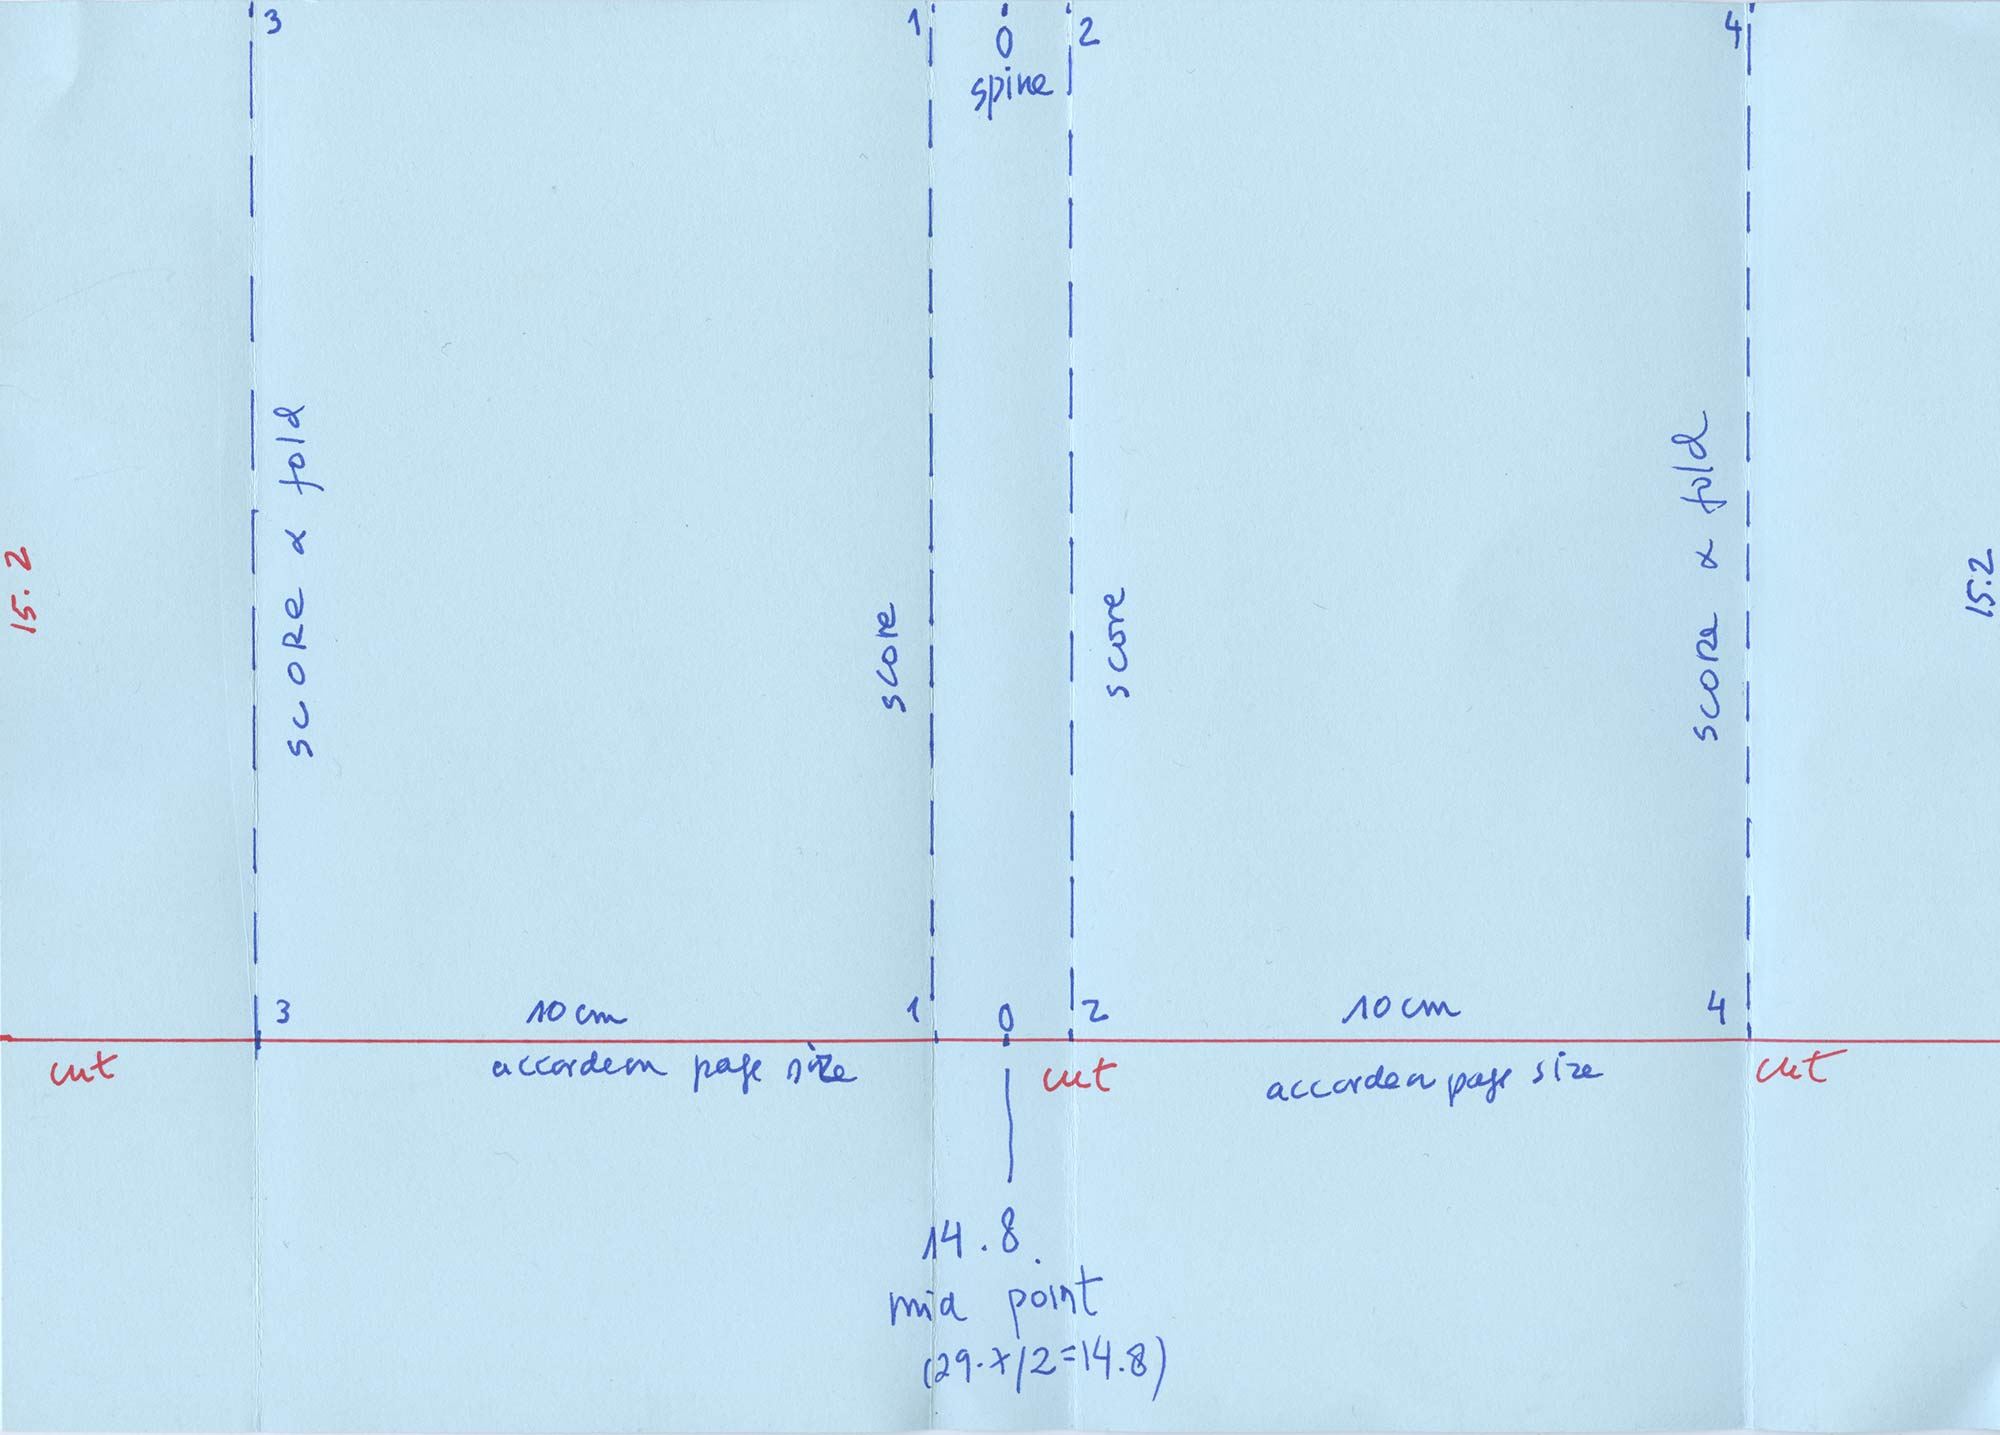 3 1 0 2 4
spine
score & fold
score & fold
15.2
15.2
score
score
3 10 cm 1 0 2 10 cm 4
cut accordeon page size cut accordeon page size cut
14.8
mid point
(29.7/2=14.8)